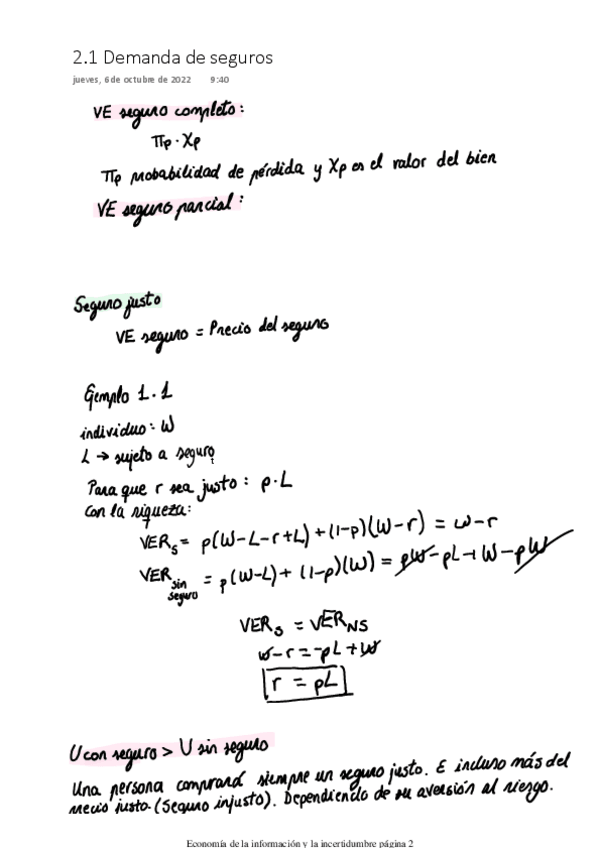 2.1 Demanda de seguros
jueves, 6 de octubre de 2022 9:40
VE seguro completo:
πp · Xp
πp probabilidad de pérdida y Xp es el valor del bien
VE seguro parcial:
Seguro justo
VE seguro = Precio del seguro
Ejemplo 1.1
individuo: W
L → sujeto a seguro
Para que r sea justo: p·L
Con la riqueza:
VERs = p(W-L-r+L)+(1-p)(W-r) = W-r
VER sin seguro = p(W-L)+(1-p)(W) = pW-pL+W-pW
VERs = VERNS
W-r=-pL+W
r = pL
U con seguro > U sin seguro
Una persona comprará siempre un seguro justo. E incluso más del
precio justo. (Seguro injusto). Dependiendo de su aversión al riesgo.
Economía de la información y la incertidumbre página 2